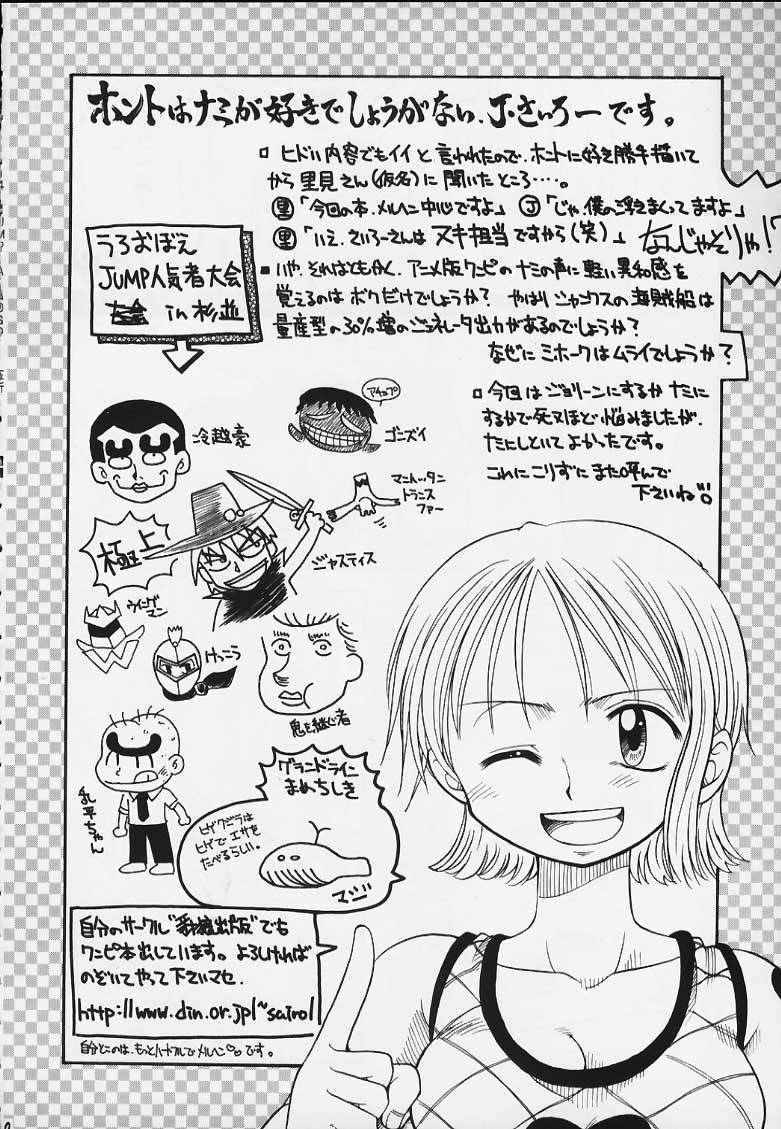 ホントはナミが好きでしょうがない、J・さいろーです。
ヒドい内容でもイイと言われたので、ホントに好き勝手描いて
から里見さん(仮名)に聞いたところ‥‥。
里「今回の本、メルヘン中心ですよ」 J「じゃ、僕の浮きまくってますよ」
里「いえ、さいろーさんはヌキ担当ですから(笑)」 なんじゃそりゃ!?
いや、それはともかく、アニメ版ワンピのナミの声に軽い異和感を
覚えるのはボクだけでしょうか? やはりシャンクスの海賊船は
量産型の30%増のジェネレータ出力があるのでしょうか?
なぜにミホークはムライでしょうか?
今回はジョリーンにするかナミに
するかで死ぬほど悩みましたが、
たにしといてよかったです。
これにこりずにまた呼んで
下さいね
うろおぼえ
JUMP人気者大会
in 杉並
冷越豪
アチョプ
ゴンズイ
マンハッタン
トランス
ファー
極上
ジャスティス
ウイングマン
けっこう
息を継ぐ者
乳平ちゃん
グランドライン
まめちしき
ヒゲクジラは
ヒゲでエサを
たべるらしい。
マジ
自分のサークル
出版"でも
ワンピ本出しています。よろしければ
のぞいてやって下さいマセ.
http://www.din.or.jp/~sairo/
自分とこのは、もっとハートフルでメルヘン♡♡です。